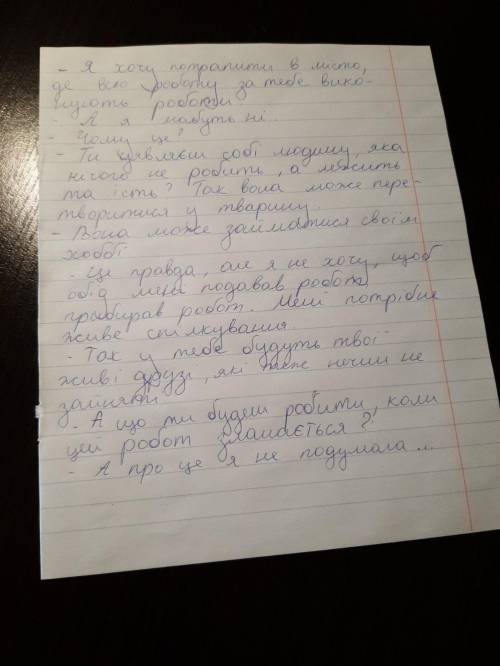 - Я хочу потрапити в місто,
де всю роботу за тебе вико-
нують роботи.
- А я мабуть ні.
- Чому це?
- Ти уявляєш собі людину, яка
нічого не робить, а лежить
та їсть? Так вона може пере-
творитися у тварину.
- Вона може займатися своїм
хоббі
- Це правда, але я не хочу, щоб
обід мені подавав робот,
прибирав робот. Мені потрібне
живе спілкування.
- Так у тебе будуть твої
живі друзі, які теж нічим не
зайняти.
- А що ти будеш робити, коли
цей робот зламається?
- А про це я не подумала...